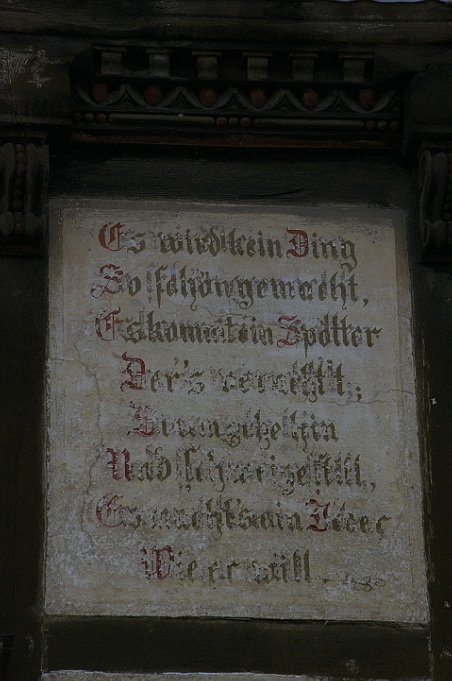 Es wird kein Ding
So schön gemacht,
Es kommt ein Spötter
Der's veracht't,
Drum geh hin
Und schweig still,
Es macht's ein Jeder
Wie er will.